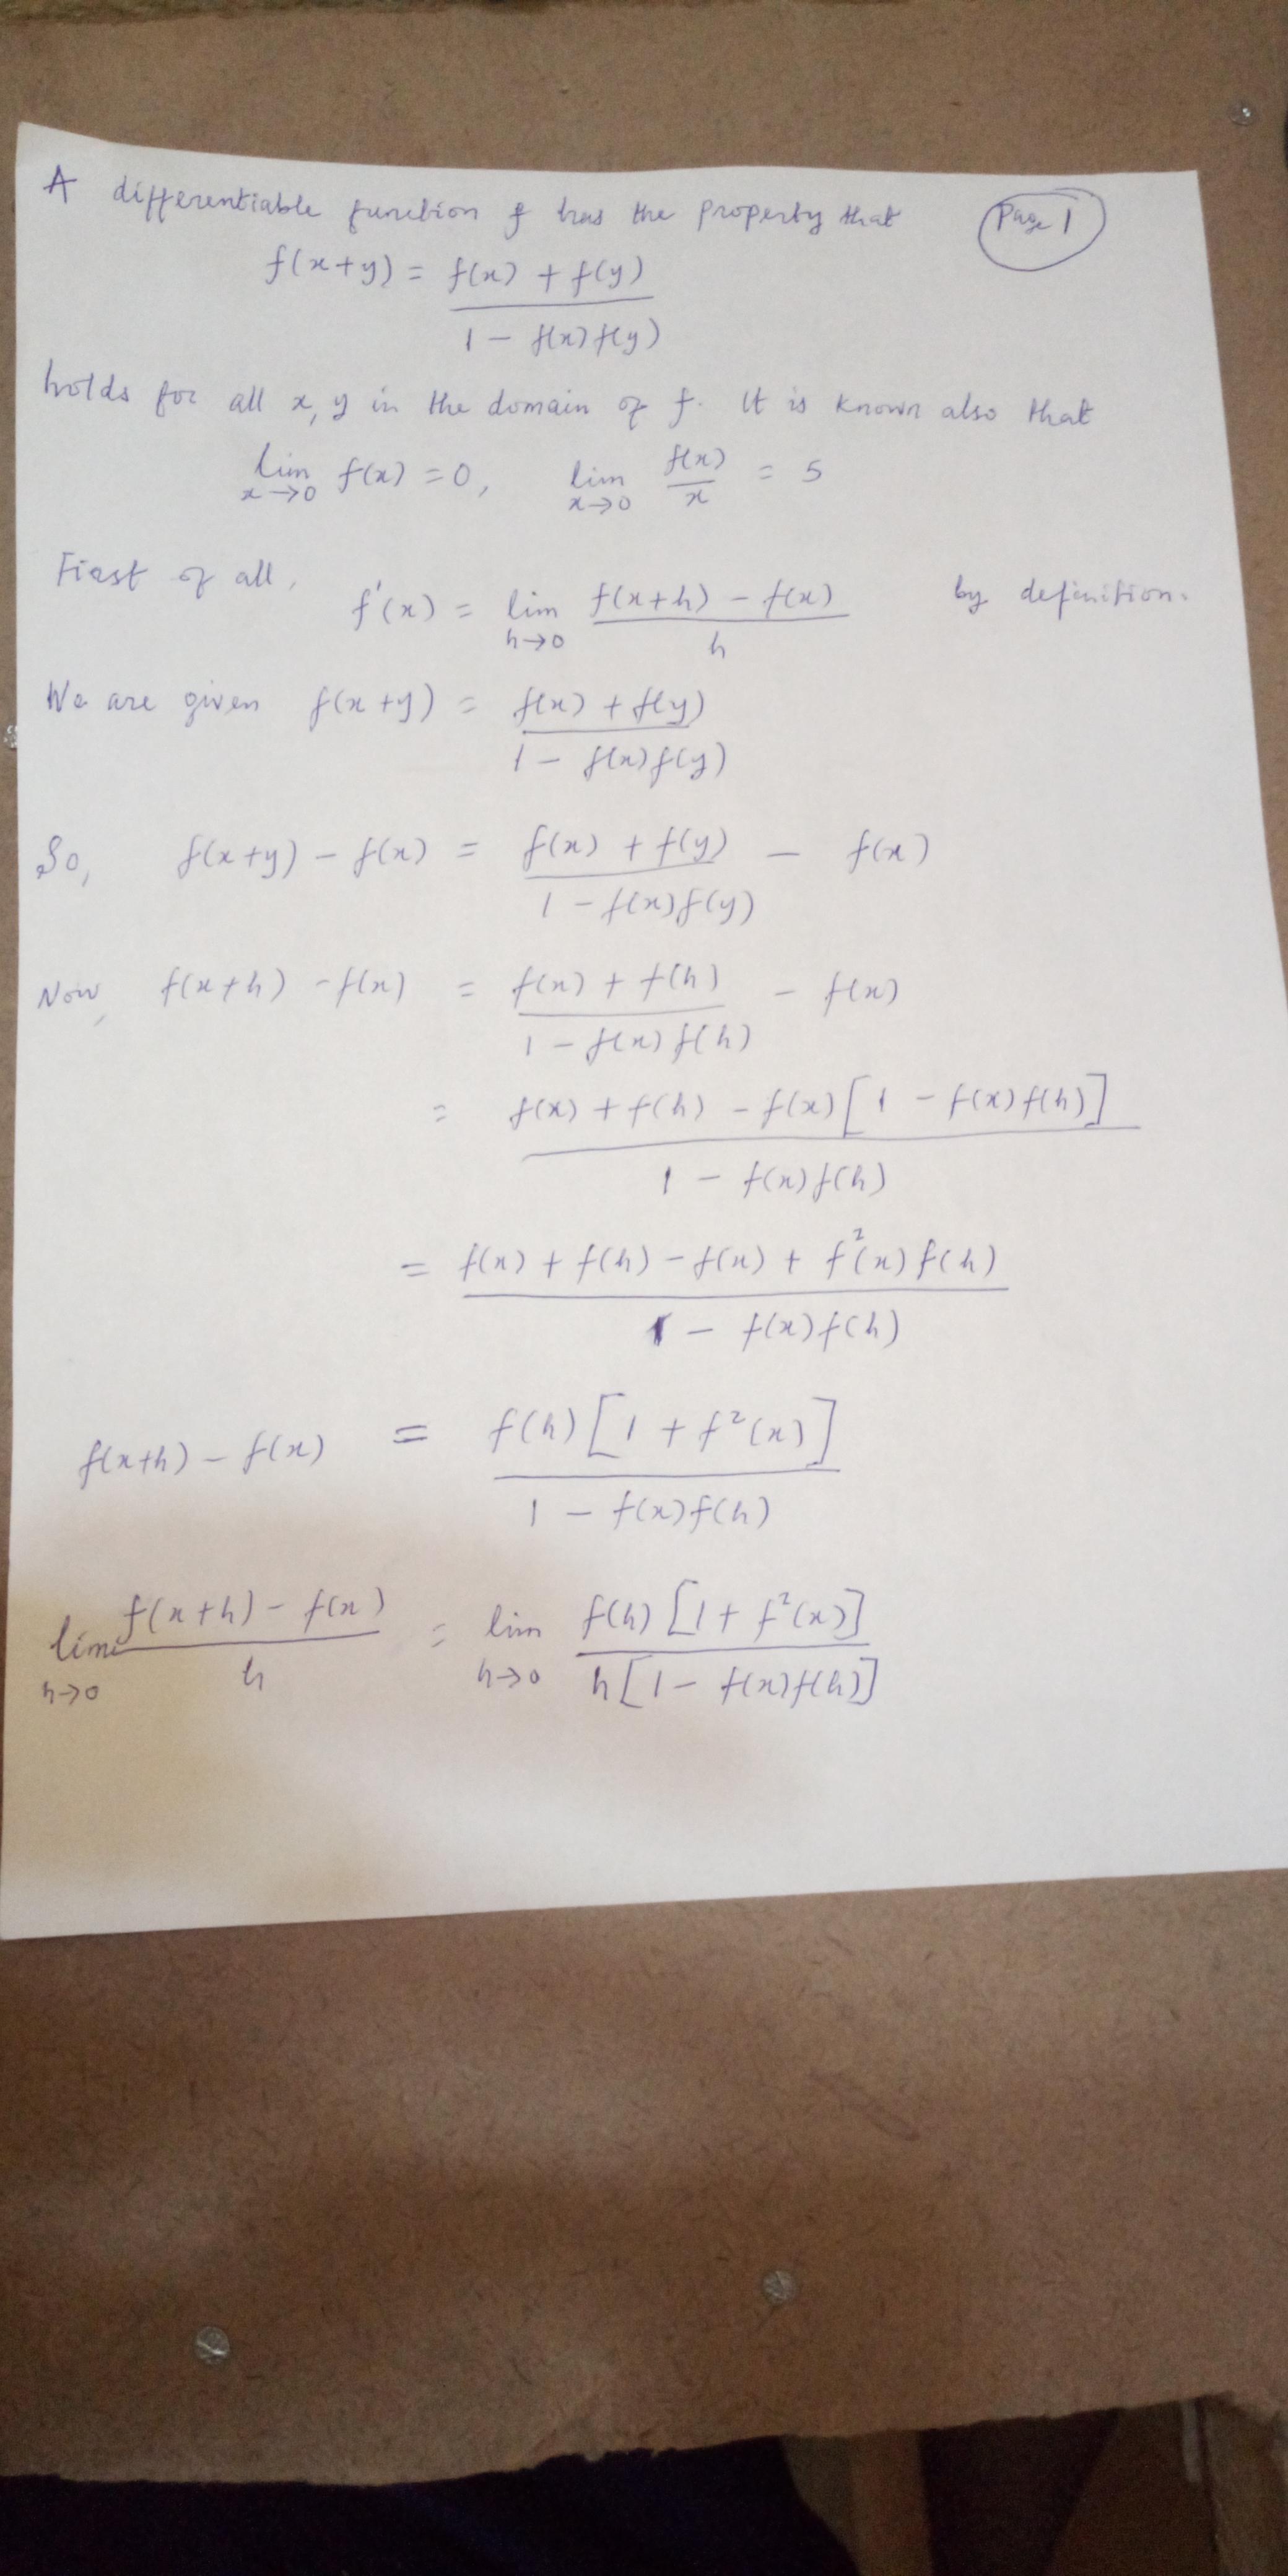 A differentiable function f has the property that
Page 1
f(x+y) = f(x) + f(y) / 1 - f(x)f(y)
holds for all x, y in the domain of f. It is known also that
lim x→0 f(x) = 0, lim x→0 f(x)/x = 5
First of all, f'(x) = lim h→0 f(x+h) - f(x) / h by definition.
We are given f(x+y) = f(x) + f(y) / 1 - f(x)f(y)
So, f(x+y) - f(x) = f(x) + f(y) / 1 - f(x)f(y) - f(x)
Now, f(x+h) - f(x) = f(x) + f(h) / 1 - f(x)f(h) - f(x)
= f(x) + f(h) - f(x)[1 - f(x)f(h)] / 1 - f(x)f(h)
= f(x) + f(h) - f(x) + f²(x)f(h) / 1 - f(x)f(h)
f(x+h) - f(x) = f(h)[1 + f²(x)] / 1 - f(x)f(h)
lim h→0 f(x+h) - f(x) / h = lim h→0 f(h)[1 + f²(x)] / h[1 - f(x)f(h)]